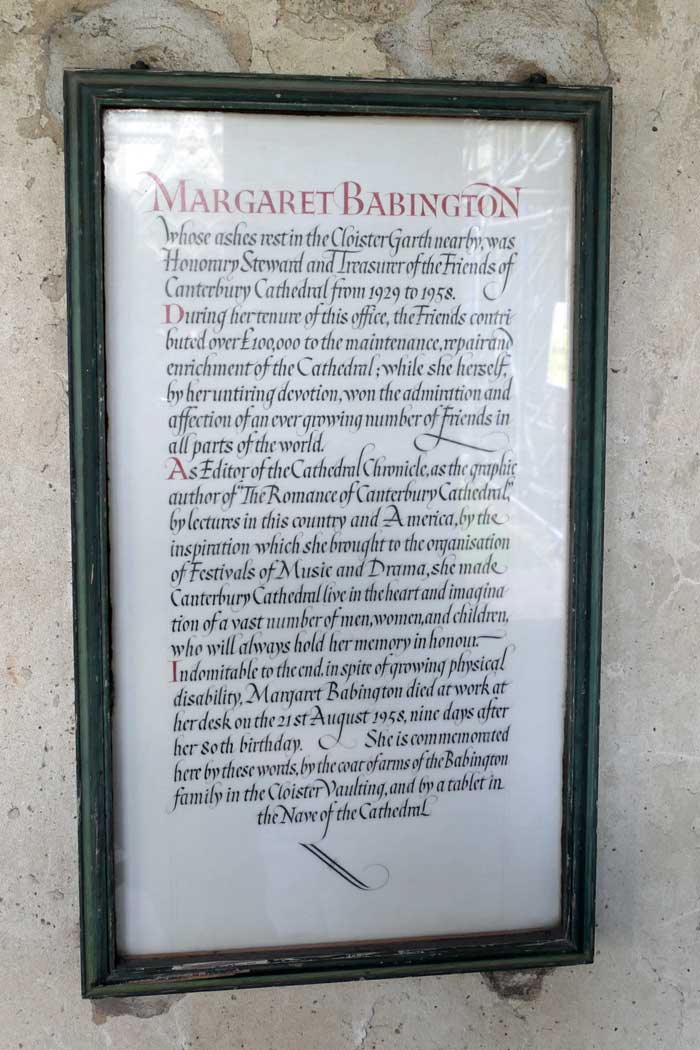 MARGARET BABINGTON
whose ashes rest in the Cloister Garth nearby, was
Honorary Steward and Treasurer of the Friends of
Canterbury Cathedral from 1929 to 1958.
During her tenure of this office, the Friends contri-
buted over £100,000 to the maintenance, repair and
enrichment of the Cathedral; while she herself,
by her untiring devotion, won the admiration and
affection of an ever growing number of Friends in
all parts of the world.
As Editor of the Cathedral Chronicle, as the graphic
author of "The Romance of Canterbury Cathedral,"
by lectures in this country and America, by the
inspiration which she brought to the organisation
of Festivals of Music and Drama, she made
Canterbury Cathedral live in the heart and imagina-
tion of a vast number of men, women, and children,
who will always hold her memory in honour.
Indomitable to the end, in spite of growing physical
disability, Margaret Babington died at work at
her desk on the 21st August 1958, nine days after
her 80th birthday. She is commemorated
here by these words, by the coat of arms of the Babington
family in the Cloister Vaulting, and by a tablet in
the Nave of the Cathedral